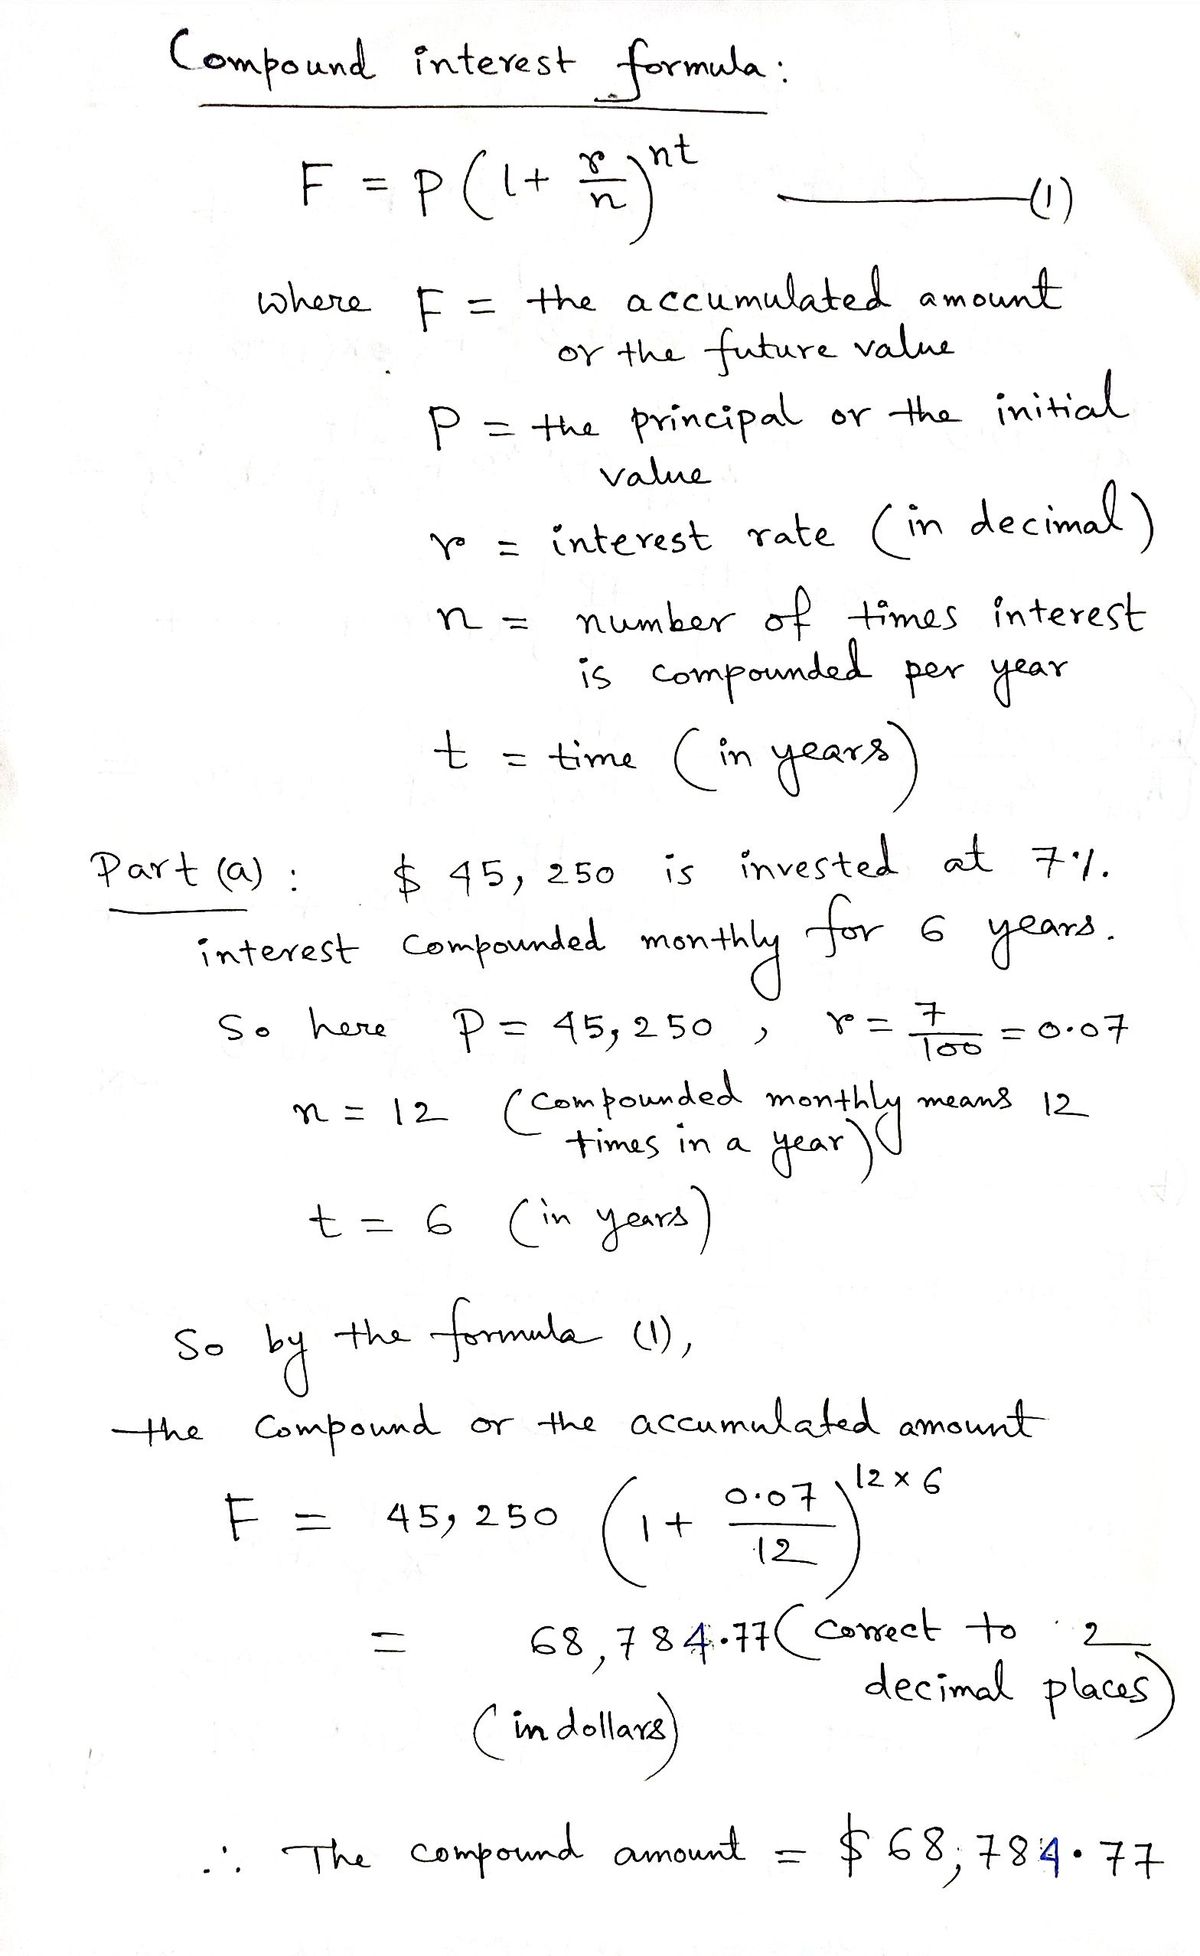 Compound interest formula:
F = P (1 + r/n)^nt ———(1)
where F = the accumulated amount
or the future value
P = the principal or the initial
value
r = interest rate (in decimal)
n = number of times interest
is compounded per year
t = time (in years)
Part (a): $ 45,250 is invested at 7%.
interest compounded monthly for 6 years.
So here P = 45,250, r = 7/100 = 0.07
n = 12 (compounded monthly means 12
times in a year)
t = 6 (in years)
So by the formula (1),
the compound or the accumulated amount
F = 45,250 (1 + 0.07/12)^12×6
= 68,784.77 (correct to 2
decimal places)
(in dollars)
∴ The compound amount = $ 68,784.77